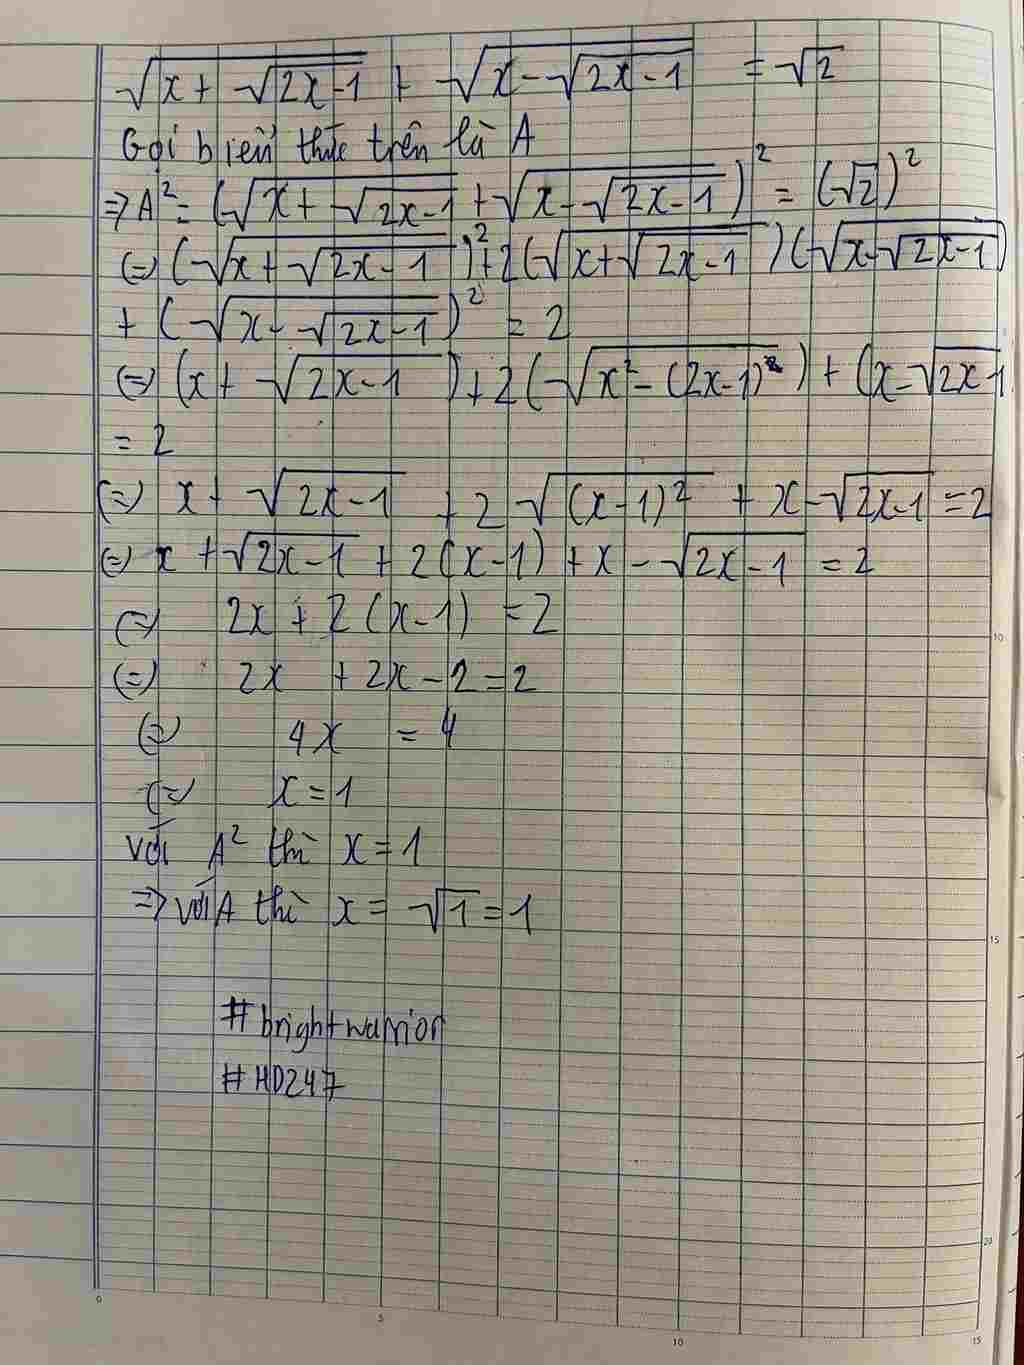 √(x + √(2x-1)) + √(x - √(2x-1)) = √2
Gọi biểu thức trên là A
=> A² = (√(x + √(2x-1)) + √(x - √(2x-1)))² = (√2)²
(=) (√(x + √(2x-1)))² + 2(√(x + √(2x-1)))(√(x - √(2x-1)))
+ (√(x - √(2x-1)))² = 2
(=) (x + √(2x-1)) + 2(√(x² - (2x-1))) + (x - √(2x-1
= 2
(=) x + √(2x-1) + 2√((x-1)²) + x - √(2x-1) = 2
(=) x + √(2x-1) + 2(x-1) + x - √(2x-1) = 2
(=) 2x + 2(x-1) = 2
(=) 2x + 2x - 2 = 2
(=) 4x = 4
(=) x = 1
Với A² thì x = 1
=> với A thì x = √1 = 1
#brightwarrior
#HD247
5
10
15
20
0
5
10
15